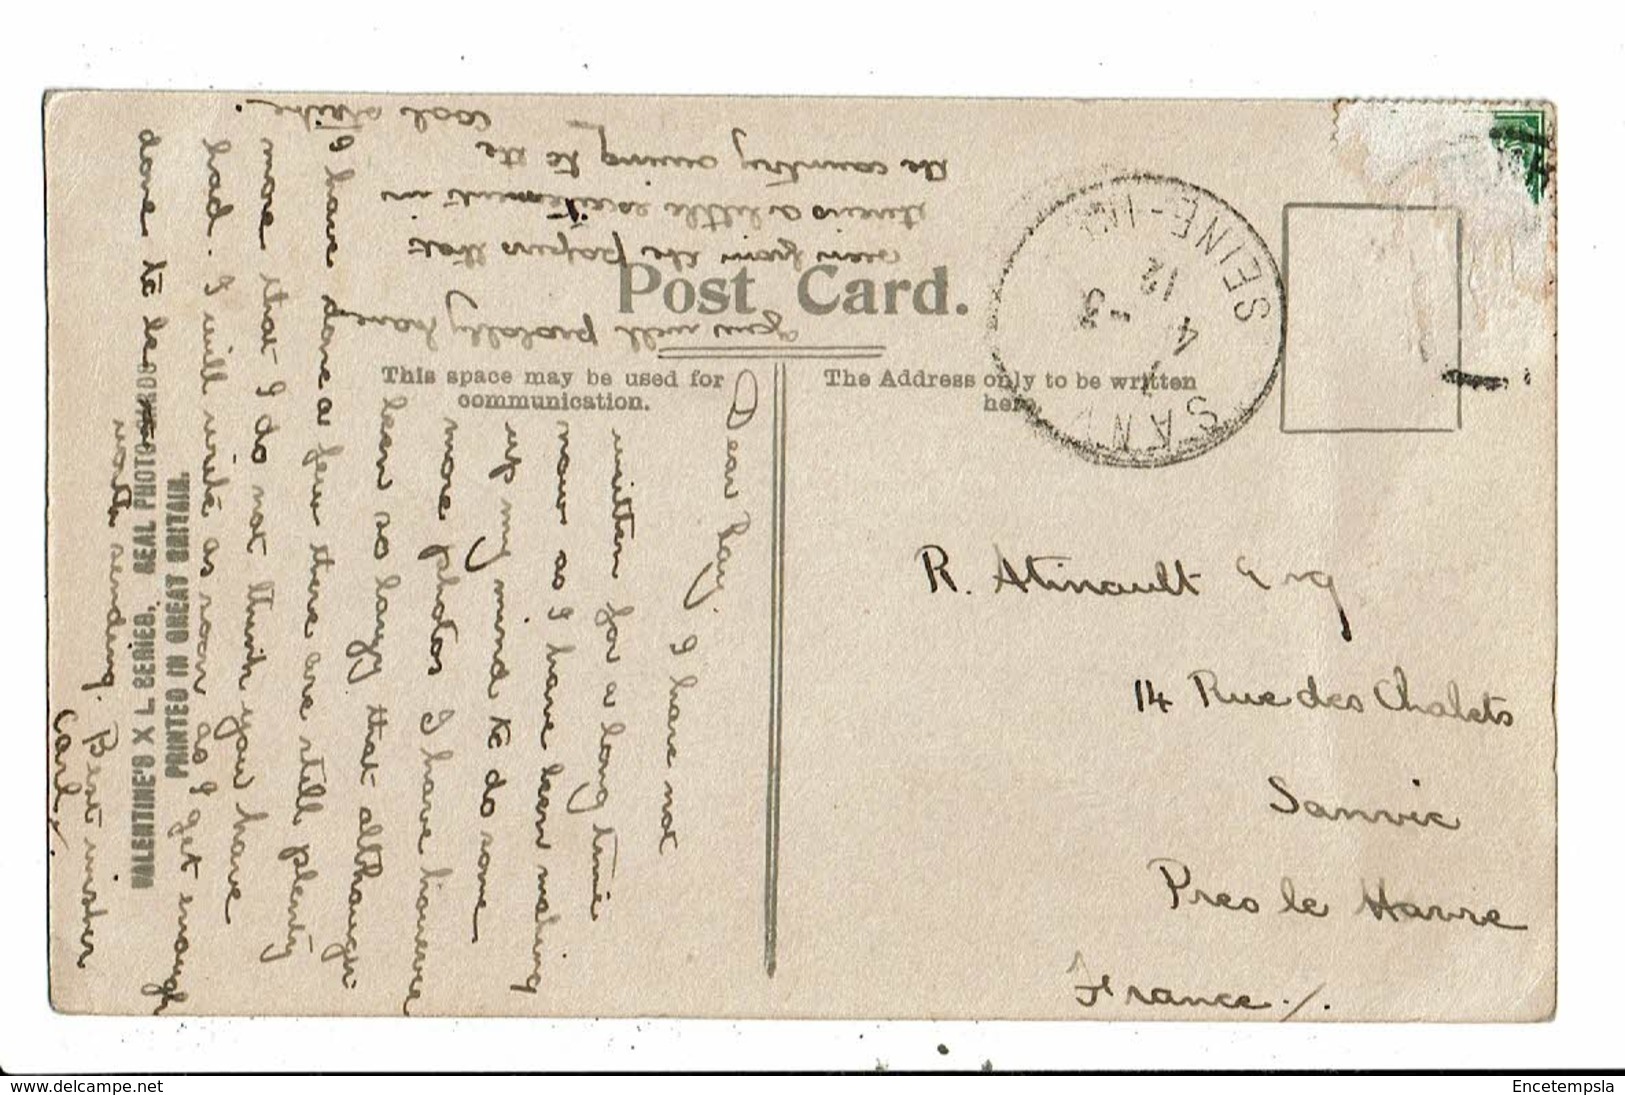 Post Card.
This space may be used for
communication.
The Address only to be written
here.
SANVIC
4 - 3
12
SEINE-INF
R. Atinault Esq
14 Rue des Chalets
Sanvic
Pres le Havre
France ./.
Dear Ray. I have not
written for a long time
now as I have been making
up my mind to do some
more photos I have however
been so lazy that although
I have done a few there are still plenty
more that I do not think you have
had. I will write as soon as I get enough
done to be
worth sending. Best wishes
Carl
You will probably have
seen from the papers that
there is a little excitement in
the country owing to the
coal strike.
VALENTINE'S X L SERIES. REAL PHOTO CARDS
PRINTED IN GREAT BRITAIN.
www.delcampe.net
Encetempsla